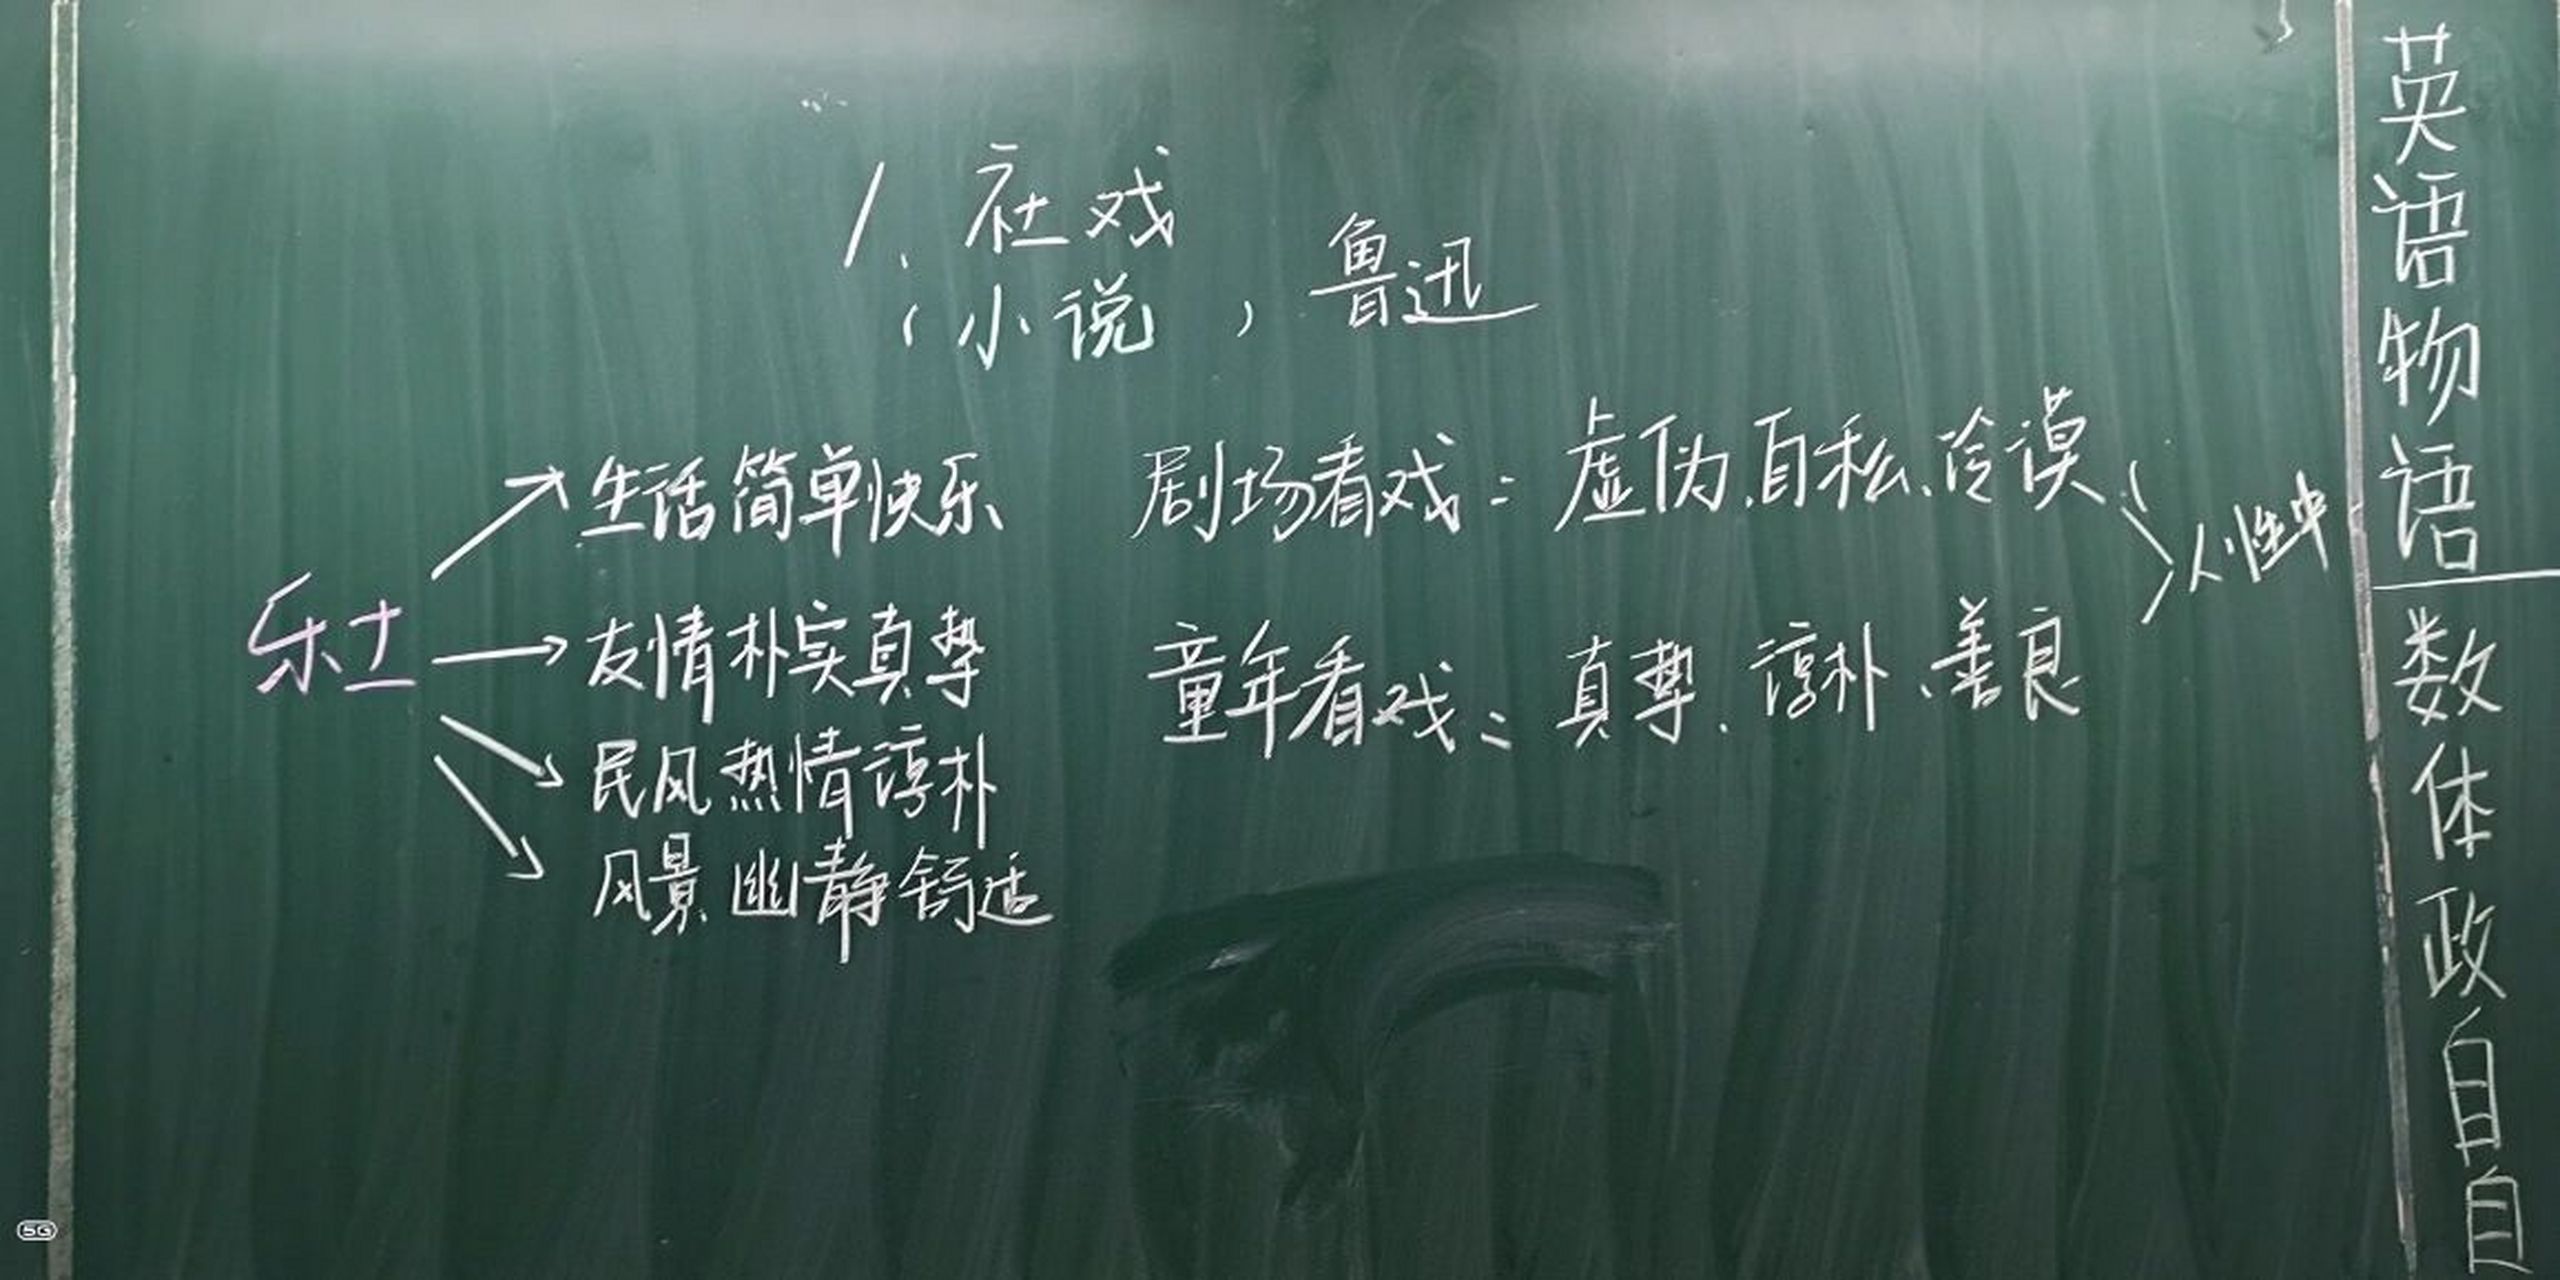 1、社戏
（小说）鲁迅
乐土
生活简单快乐
友情朴实真挚
民风热情淳朴
风景幽静舒适
剧场看戏：虚伪、自私、冷漠
童年看戏：真挚、淳朴、善良
人性
英语物语
数体政自自
5G